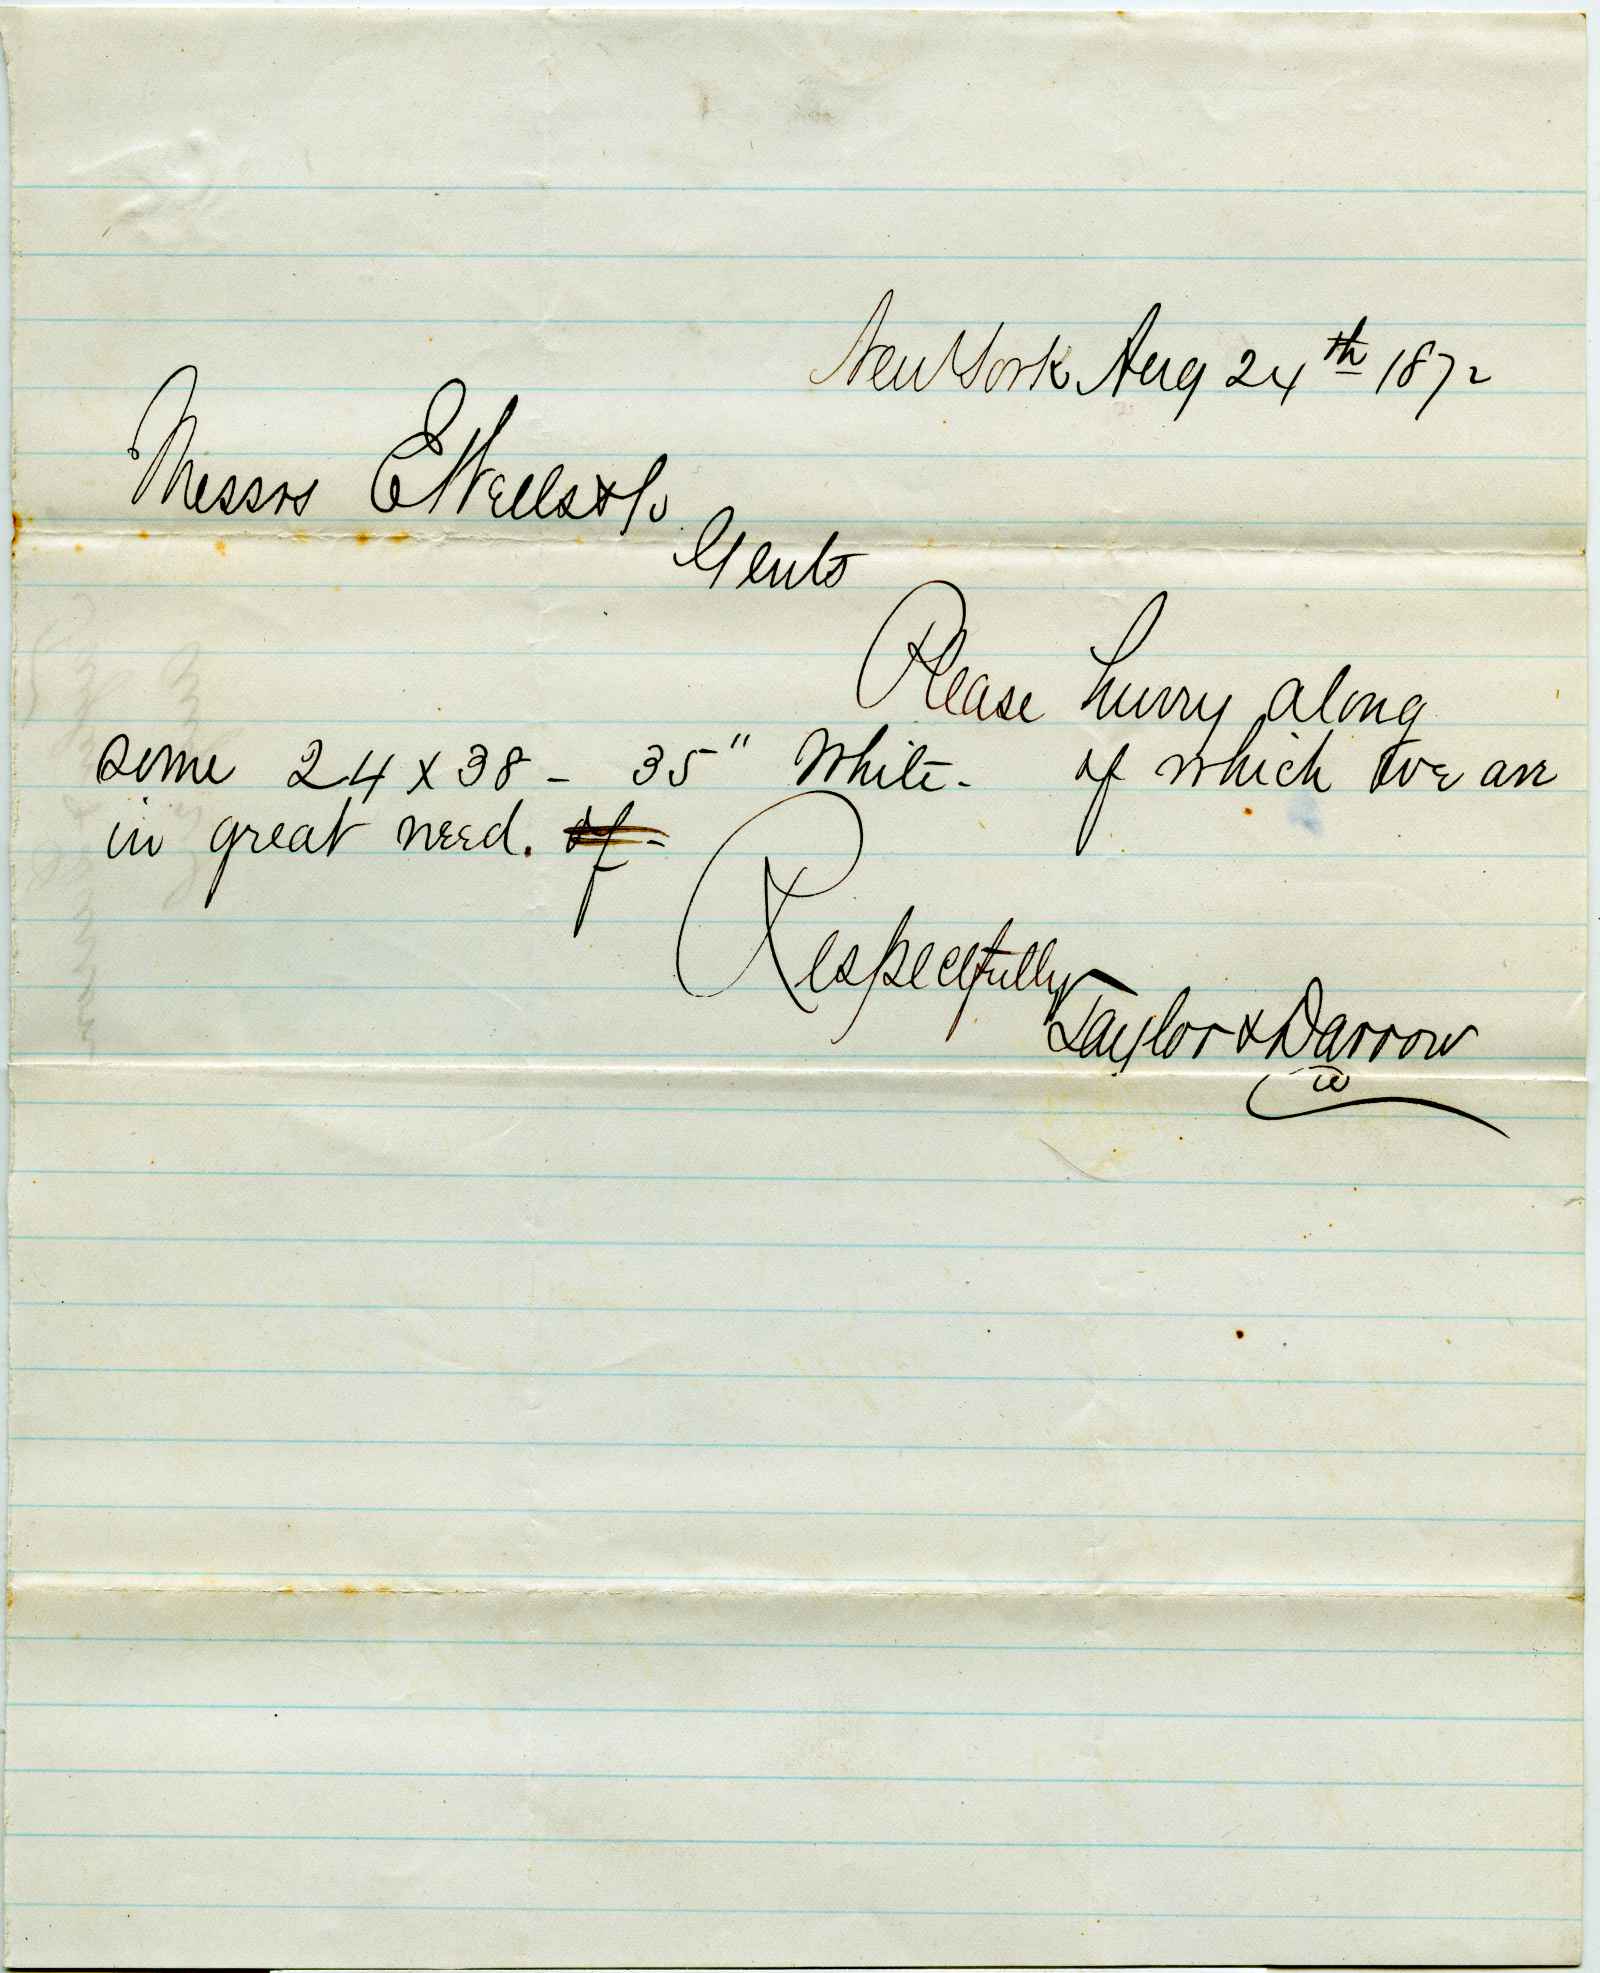 New York Aug 24th 1872
Messrs E Wells & Co
Gents
Please hurry along
some 24 x 38 - 35" White - of which we are
in great need. of -
Respectfully
Taylor & Darrow